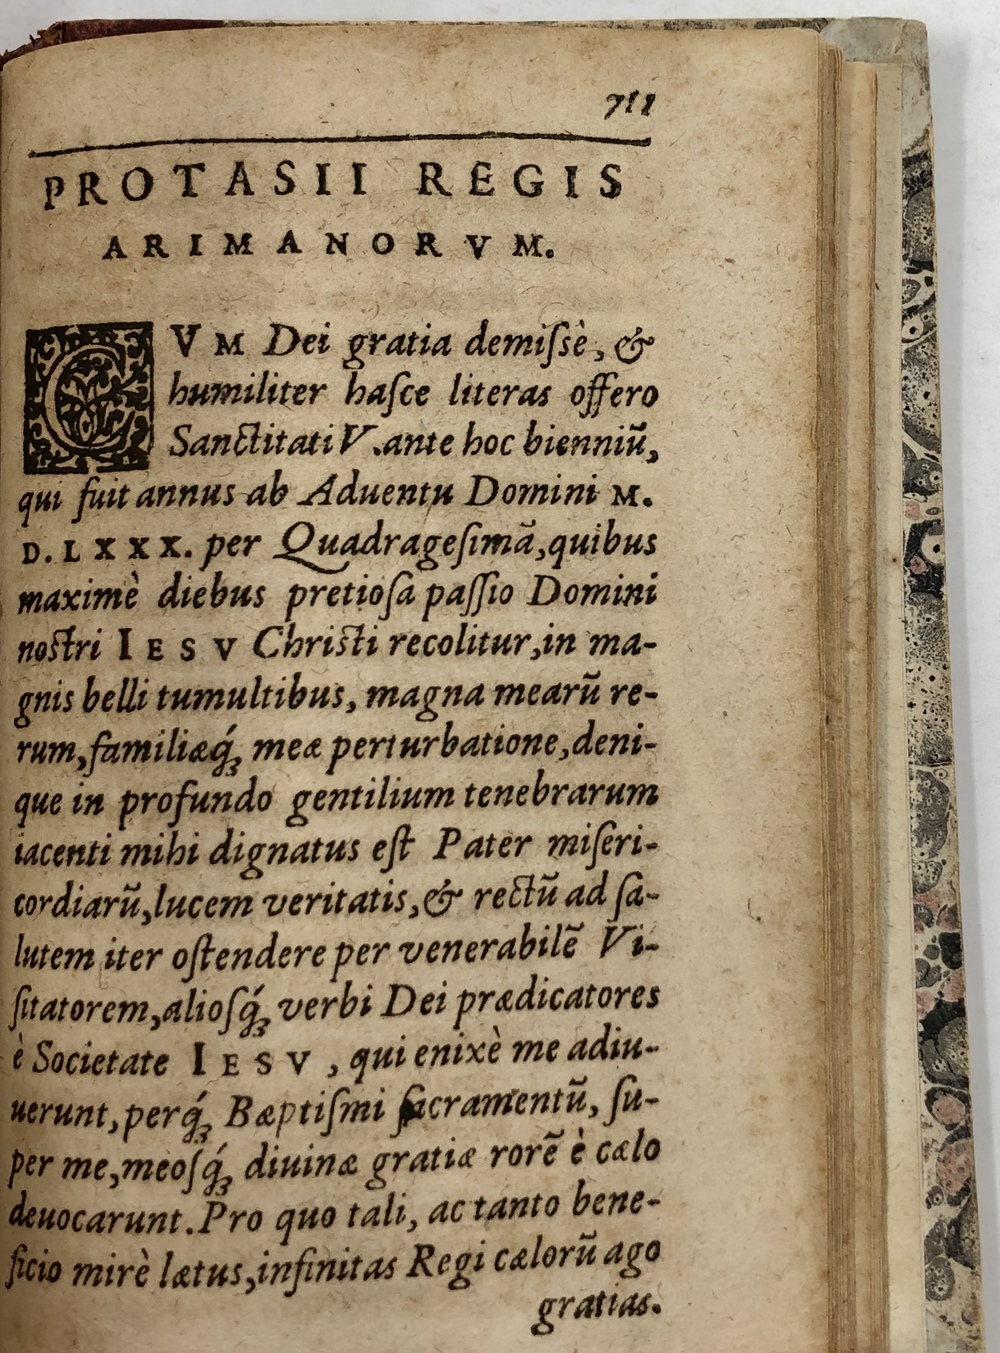 711
PROTASII REGIS
ARIMANORVM.
CVM Dei gratia demiſsè, &
humiliter haſce literas offero
Sanctitati V. ante hoc bienniũ,
qui fuit annus ab Aduentu Domini M.
D. LXXX. per Quadrageſimã, quibus
maximè diebus pretioſa paſſio Domini
noſtri IESV Chriſti recolitur, in ma-
gnis belli tumultibus, magna mearũ re-
rum, familiæq́; meæ perturbatione, deni-
que in profundo gentilium tenebrarum
iacenti mihi dignatus eſt Pater miſeri-
cordiarũ, lucem veritatis, & rectũ ad ſa-
lutem iter oſtendere per venerabilẽ Vi-
ſitatorem, alioſq́; verbi Dei prædicatores
è Societate IESV, qui enixè me adiu-
uerunt, perq́; Bæptiſmi ſacramentũ, ſu-
per me, meoſq́; diuinæ gratiæ rorẽ è cælo
deuocarunt. Pro quo tali, ac tanto bene-
ficio mirè lætus, infinitas Regi cælorũ ago
gratias.